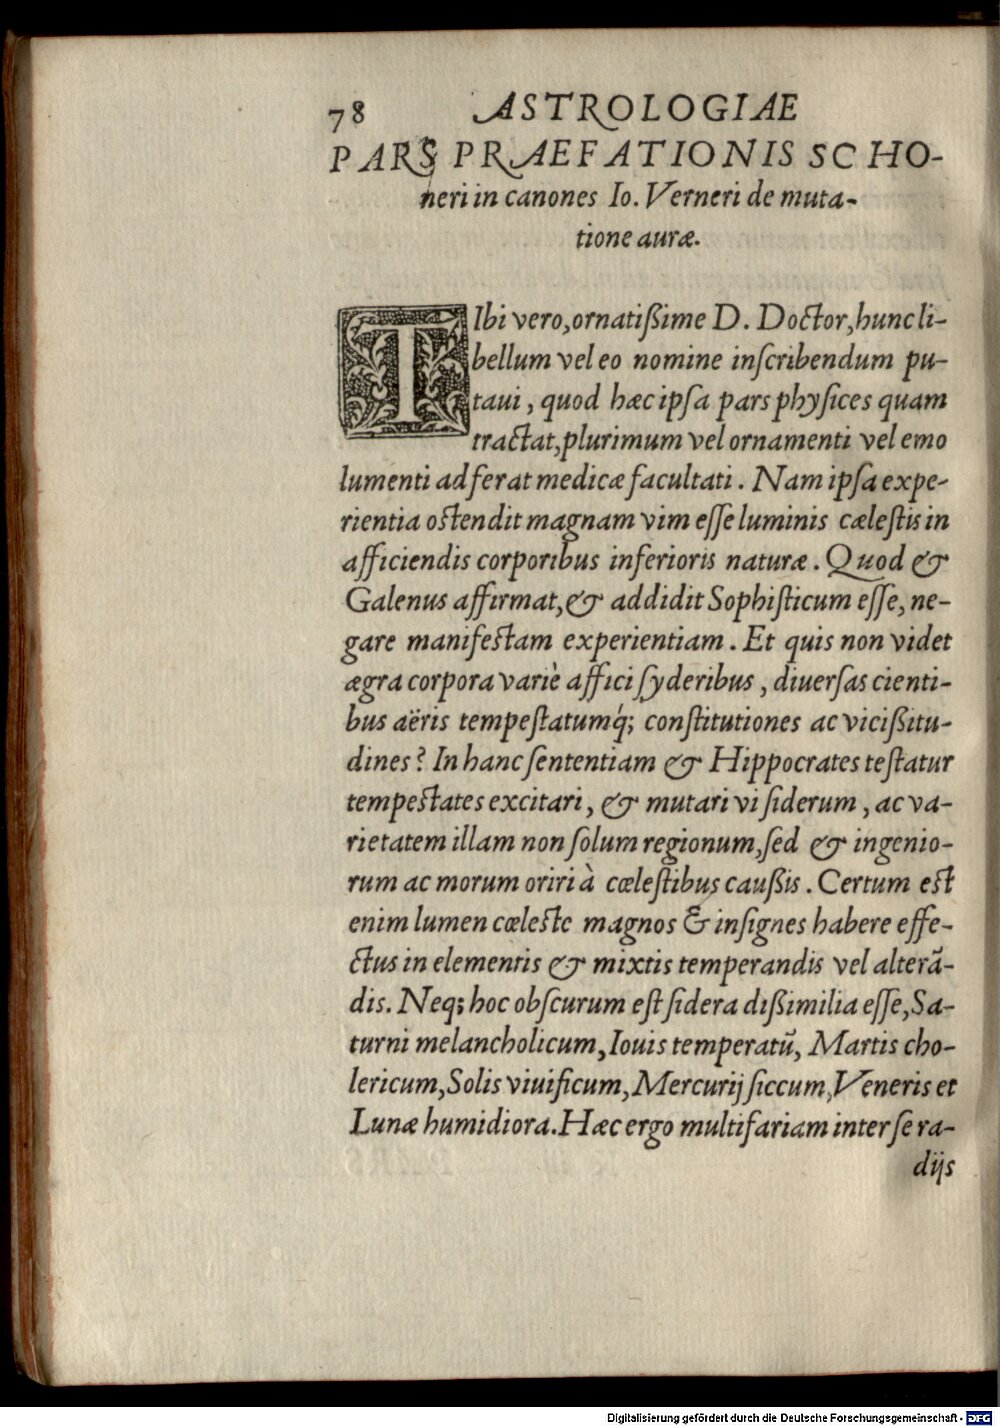 78 ASTROLOGIAE
PARS PRAEFATIONIS SCHO-
neri in canones Io. Verneri de muta-
tione auræ.
TIbi vero, ornatißime D. Doctor, hunc li-
bellum vel eo nomine inſcribendum pu-
taui, quod hæc ipſa pars phyſices quam
tractat, plurimum vel ornamenti vel emo
lumenti adferat medicæ facultati. Nam ipſa expe-
rientia oſtendit magnam vim eſſe luminis cæleſtis in
afficiendis corporibus inferioris naturæ. Quod &
Galenus affirmat, & addidit Sophiſticum eſſe, ne-
gare manifeſtam experientiam. Et quis non videt
ægra corpora variè affici ſyderibus, diuerſas cienti-
bus aëris tempeſtatumq́; conſtitutiones ac vicißitu-
dines? In hanc ſententiam & Hippocrates teſtatur
tempeſtates excitari, & mutari vi ſiderum, ac va-
rietatem illam non ſolum regionum, ſed & ingenio-
rum ac morum oriri à cœleſtibus caußis. Certum eſt
enim lumen cœleſte magnos & inſignes habere effe-
ctus in elementis & mixtis temperandis vel alterā-
dis. Neq; hoc obſcurum eſt ſidera dißimilia eſſe, Sa-
turni melancholicum, Iouis temperatū, Martis cho-
lericum, Solis viuificum, Mercurij ſiccum, Veneris et
Lunæ humidiora. Hæc ergo multifariam inter ſe ra-
dijs
Digitalisierung gefördert durch die Deutsche Forschungsgemeinschaft - DFG